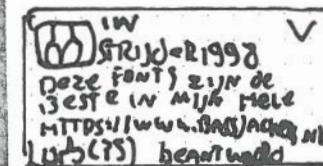 1W
STRIJDER1998
DEZE FONTS ZIJN DE
BESTE IN MIJN HELE
HTTPS://WWW.BASSJACKERS.NL
(75) BEANTWOORD